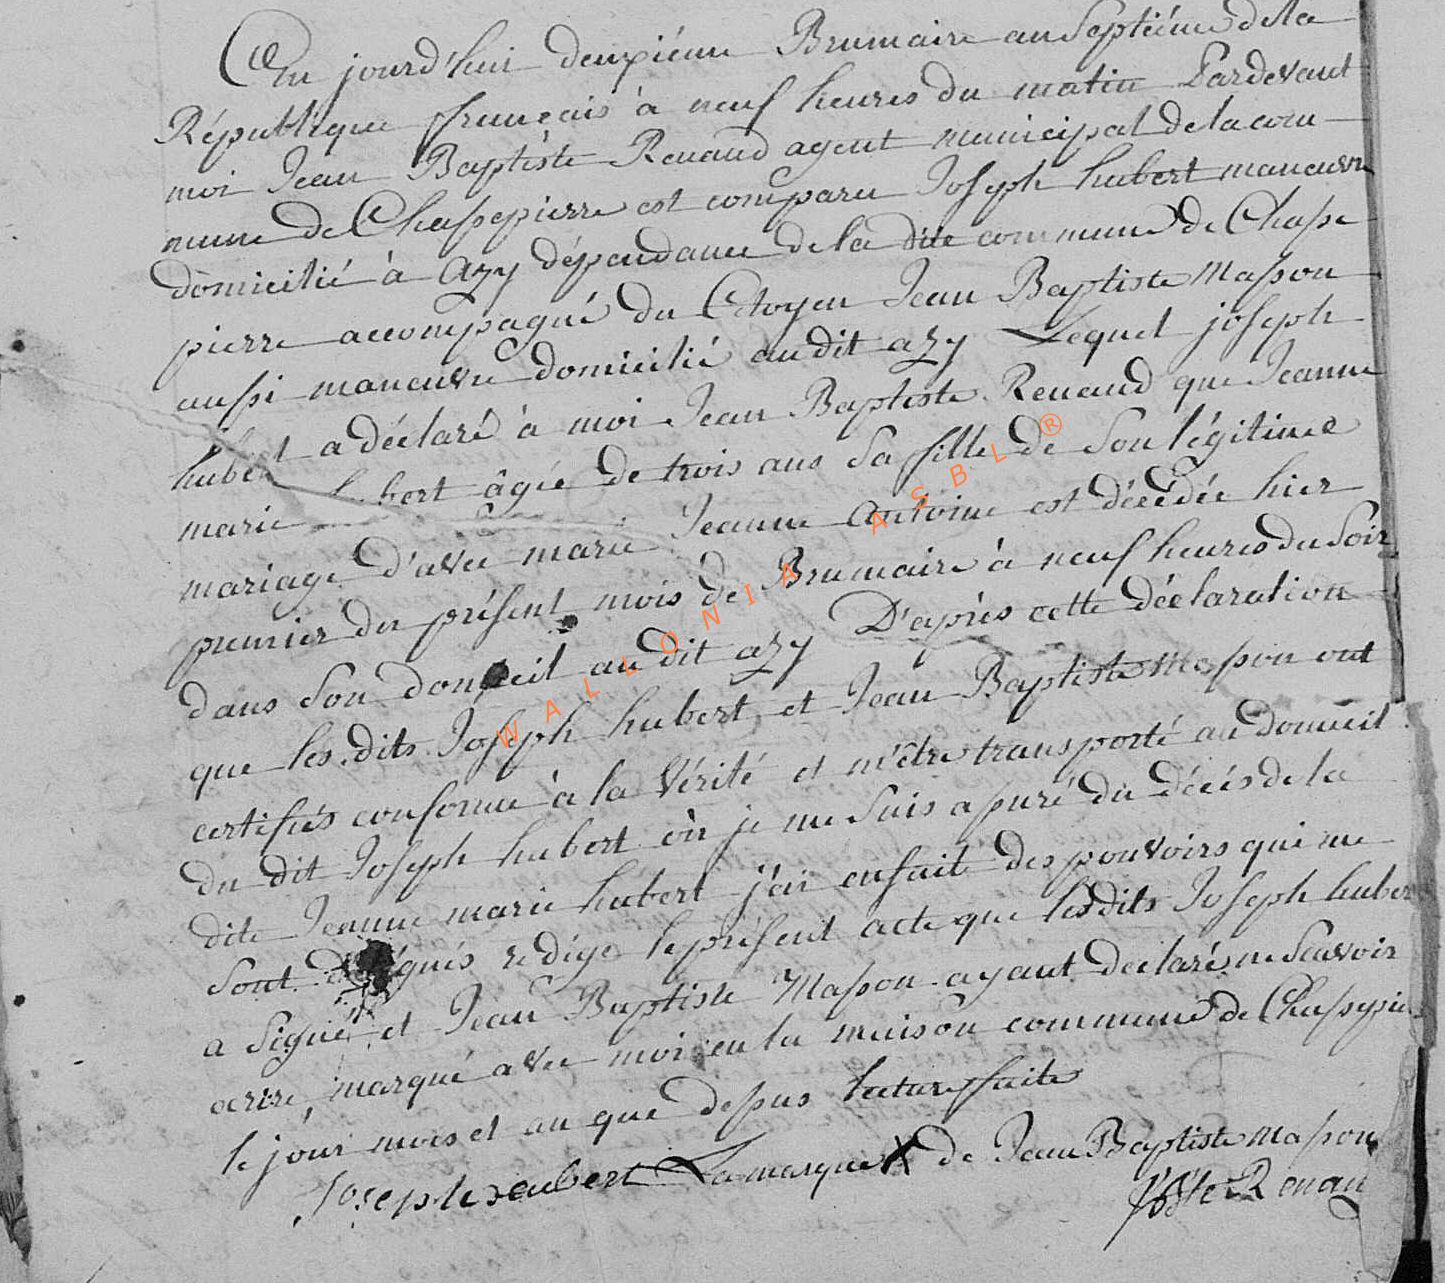 Cejourd'hui deuxiéme Brumaire an Septiéme de la
République français à neuf heures du matin Pardevant
moi Jean Baptiste Renaud agent municipal de la com
mune de Chassepierre est comparu Joseph hubert maneuvre
domicilié à Azy dépendance de la dite commune de Chasse
pierre accompagné du Citoyen Jean Baptiste Masson
aussi maneuvre domicilié audit azy Lequel joseph
hubert a déclaré à moi Jean Baptiste Renaud que Jeanne
marie hubert âgée de trois ans Sa fille de Son légitime
mariage d'avec marie Jeanne Antoine est décédée hier
premier du présent mois de Brumaire à neuf heures du Soir
dans Son domicil audit azy D'après cette déclaration
que les dits Joseph hubert et Jean Baptiste Masson ont
certifiés conforme à la Vérité et m'être transporté au Domicil
du dit Joseph hubert où je me Suis assuré du décés de la
dite Jeanne marie hubert j'ai enfait des pouvoirs qui me
Sont délégués redigé le présent acte que lesdits Joseph huber
a Signé et Jean Baptiste Masson ayant declaré ne Scavoir
ecrire, marqué avec moi en la maison commune de Chassepier
le jour mois et an que dessus lecture faite
Joseph hubert La marque X de Jean Baptiste Masson
JBSte Renau
WALLONIA ASBL ®